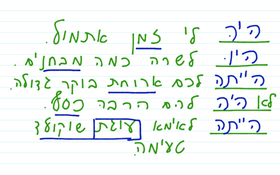 היה לי זמן אתמול.
היו לשרה כמה מבחנים.
הייתה לכם ארוחת בוקר גדולה.
לא היה להם הרבה כסף.
הייתה לאימא עוגת שוקולד
טעימה.